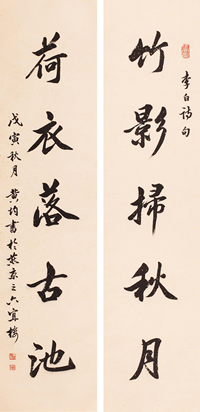 李白诗句
竹影掃秋月
荷衣落古池
戊寅秋月黄均書於燕京之六寓樓